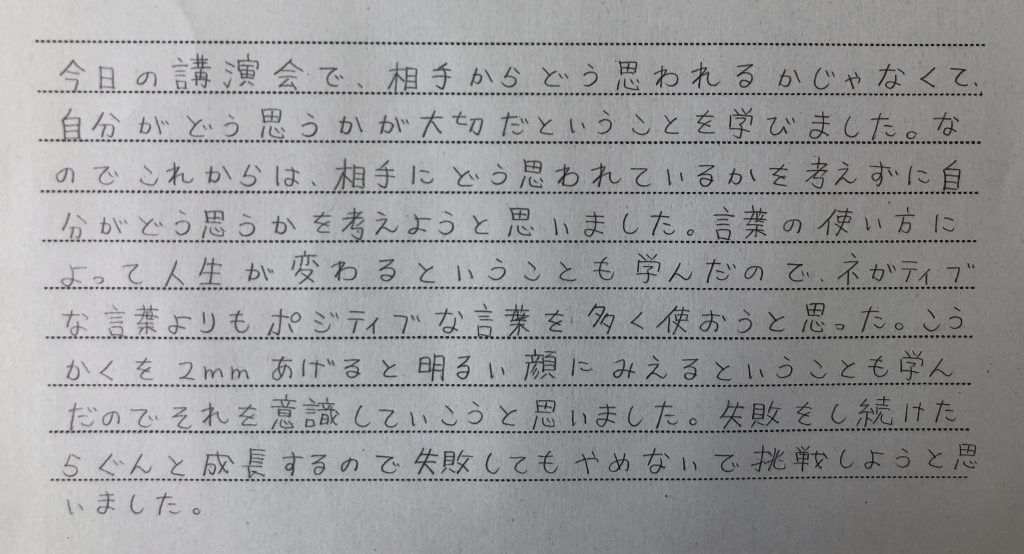 今日の講演会で、相手からどう思われるかじゃなくて、
自分がどう思うかが大切だということを学びました。な
のでこれからは、相手にどう思われているかを考えずに自
分がどう思うかを考えようと思いました。言葉の使い方に
よって人生が変わるということも学んだので、ネガティブ
な言葉よりもポジティブな言葉を多く使おうと思った。こう
かくを2mmあげると明るい顔にみえるということも学ん
だのでそれを意識していこうと思いました。失敗をし続けた
らぐんと成長するので失敗してもやめないで挑戦しようと思
いました。